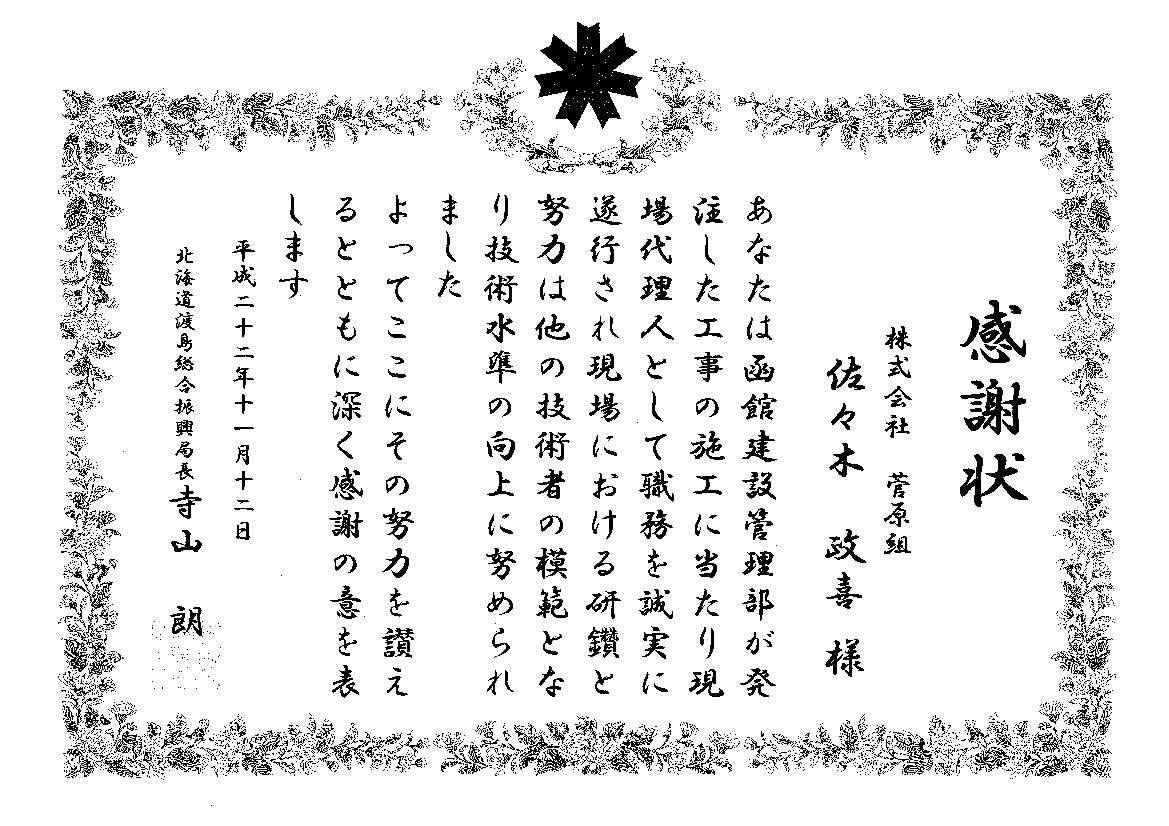 感謝状
株式会社　菅原組
佐々木　政喜　様
あなたは函館建設管理部が発
注した工事の施工に当たり現
場代理人として職務を誠実に
遂行され現場における研鑽と
努力は他の技術者の模範とな
り技術水準の向上に努められ
ました
よってここにその努力を讃え
るとともに深く感謝の意を表
します
平成二十二年十一月十二日
北海道渡島総合振興局長　寺山　朗